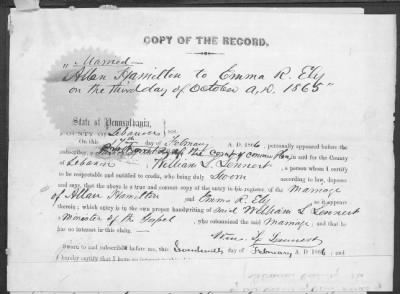 COPY OF THE RECORD.
"Married—
Allan Hamilton to Emma R. Ely
on the third day of October A.D. 1865"
State of Pennsylvania,
COUNTY OF Lebanon } ss.
17th day of February A.D. 1866, personally appeared before the
subscriber, of the court of common pleas, in and for the County
of Lebanon William L. Lennert a person whom I certify
to be respectable and entitled to credit, who being duly Sworn according to law, deposed
and says, that the above is a true and correct copy of the entry in his register, of the Marriage
of Allan Hamilton and Emma R. Ely as it appears
therein; which entry is in the own proper handwriting of said William L. Lennert
Minister of the Gospel, who solemnized the said Marriage; and that he
has no interest in this claim. L. Lennert
Sworn to and subscribed before me, this Seventeenth day of February A. D. 1866; and
I hereby certify that I have no interest